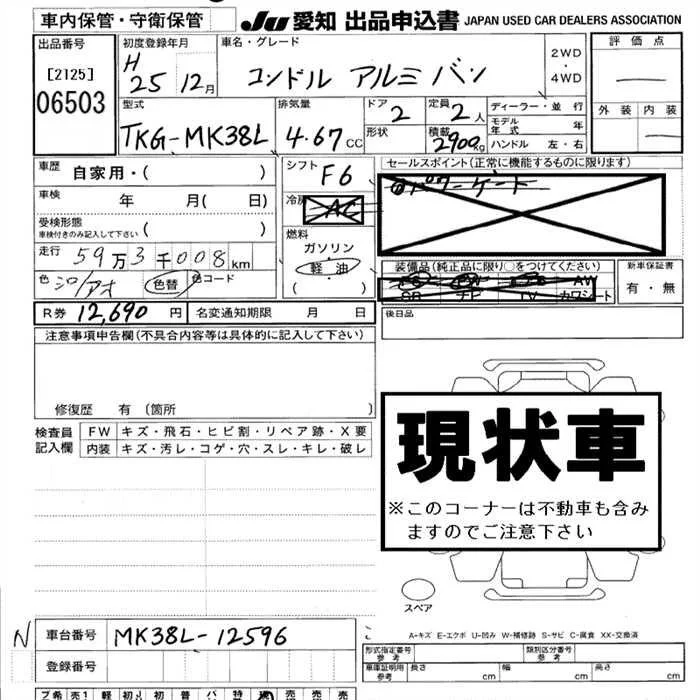 車内保管・守衛保管
JU 愛知 出品申込書 JAPAN USED CAR DEALERS ASSOCIATION
出品番号
[2125]
06503
初度登録年月
H 25 12月
車名・グレード
コンドル アルミバン
2WD
・
4WD
評価点
外装 内装
型式
TKG-MK38L
排気量
4.67cc
ドア
2
形状
定員
2人
積載
2900kg
ディーラー・並 行
モデル年式 年
ハンドル 左・右
車歴
自家用・( )
車検 年 月( 日)
受検形態
車検付きのみ記入して下さい ( )
走行 59万3千008km
色 シロ/アオ 色替 色コード
シフト
F6
冷房
AC
燃料
ガソリン・
軽油
( )
セールスポイント(正常に機能するものに限ります)
パワーゲート
装備品(純正品に限り○をつけてください)
SR ナビ TV カワシート
新車保証書
有・無
R券 12,690円 名変通知期限 月 日
後日品
注意事項申告欄(不具合内容等は具体的に記入して下さい)
修復歴 有 〔箇所 〕
検査員記入欄
FW キズ・飛石・ヒビ割・リペア跡・X要
内装 キズ・汚レ・コゲ・穴・スレ・キレ・破レ
現状車
※このコーナーは不動車も含み
ますのでご注意下さい
スペア
N 車台番号 MK38L-12596
登録番号
A-キズ E-エクボ U-凹み W-補修跡 S-サビ C-腐食 XX-交換済
形式指定番号 参考
類別区分番号 参考
車庫証明用参考 長さ cm 幅 cm 高さ cm